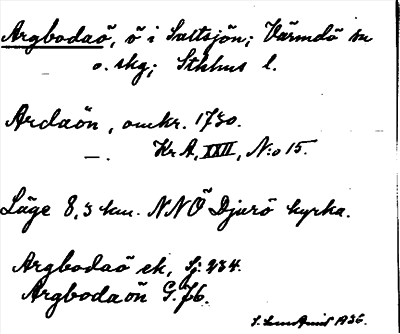 Argbodaö, ö i Saltsjön; Värmdö sn
o. skg; Sthlms l.
Ardaön, omkr. 1730.
—. Kr A, XXII, N:o 15.
Läge 8,3 km. NNÖ Djurö kyrka.
Argbodaö ek, Sj. 234.
Argbodaön G. 76.
1936.